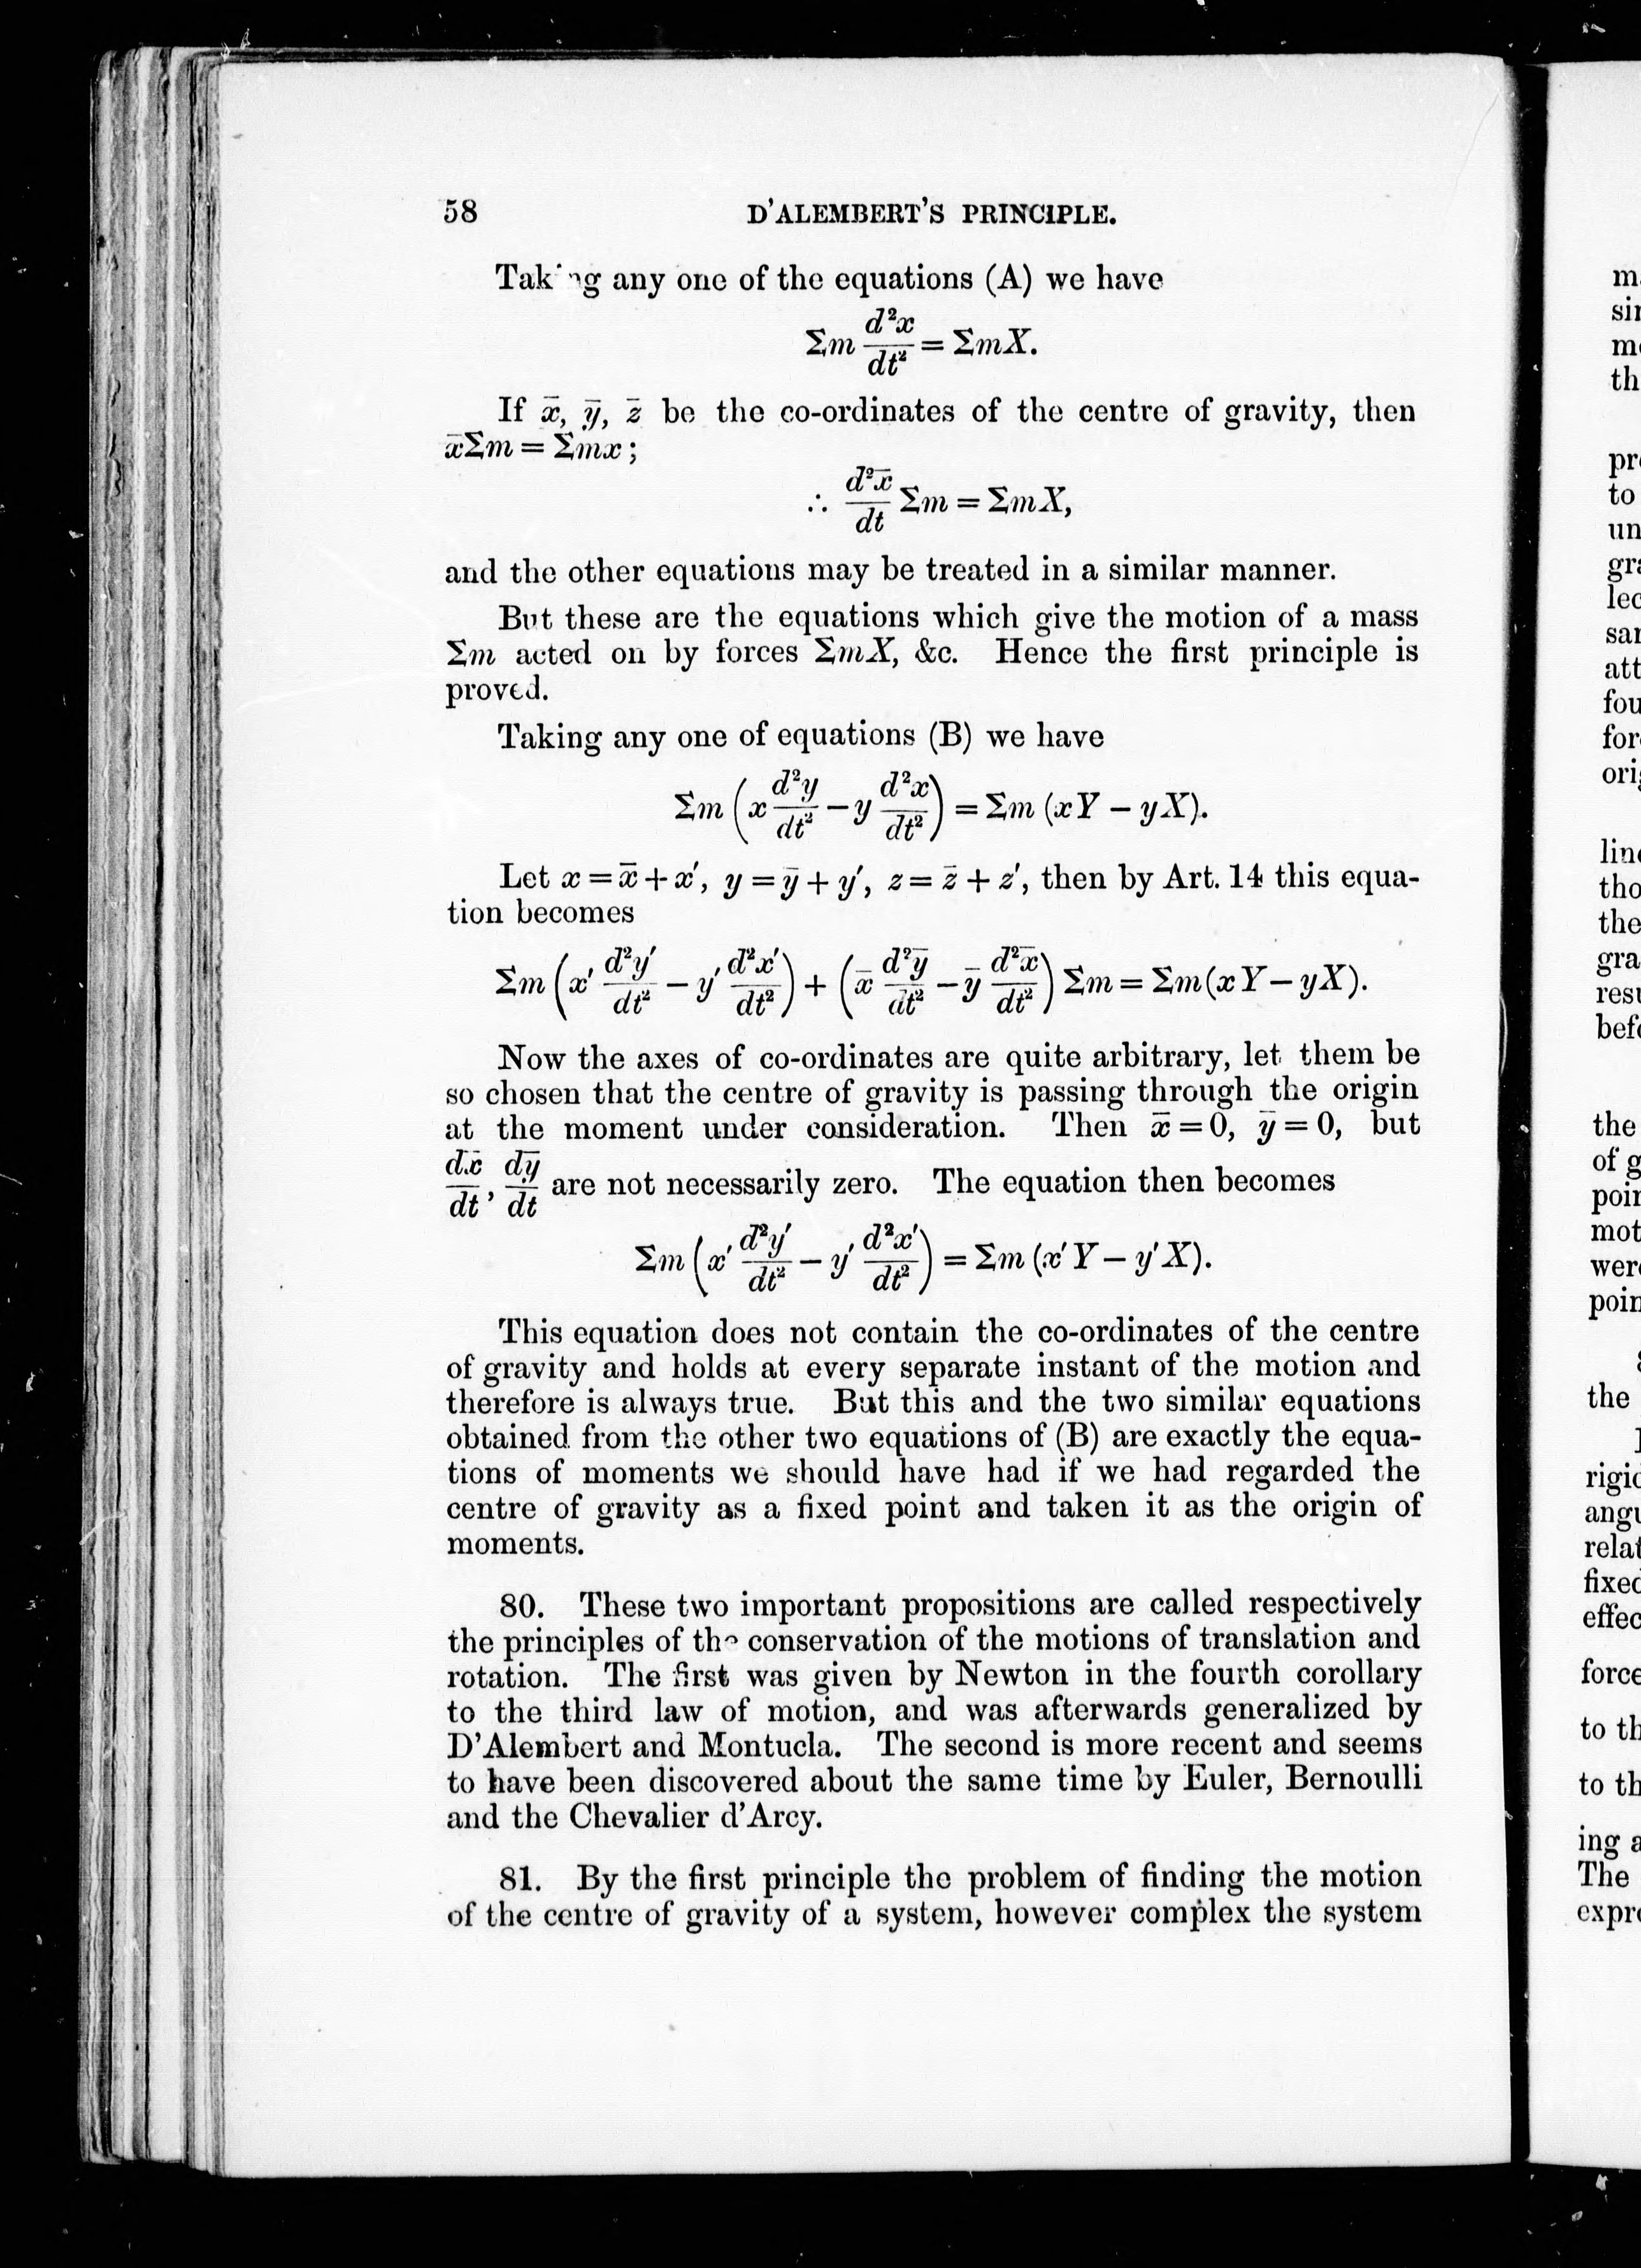 58 D'ALEMBERT'S PRINCIPLE.
Taking any one of the equations (A) we have
Σm d²x/dt² = ΣmX.
If x̄, ȳ, z̄ be the co-ordinates of the centre of gravity, then
x̄Σm = Σmx ;
∴ d²x̄/dt Σm = ΣmX,
and the other equations may be treated in a similar manner.
But these are the equations which give the motion of a mass
Σm acted on by forces ΣmX, &c. Hence the first principle is
proved.
Taking any one of equations (B) we have
Σm (x d²y/dt² – y d²x/dt²) = Σm (xY – yX).
Let x = x̄ + x′, y = ȳ + y′, z = z̄ + z′, then by Art. 14 this equa-
tion becomes
Σm (x′ d²y′/dt² – y′ d²x′/dt²) + (x̄ d²ȳ/dt² – ȳ d²x̄/dt²) Σm = Σm (xY – yX).
Now the axes of co-ordinates are quite arbitrary, let them be
so chosen that the centre of gravity is passing through the origin
at the moment under consideration. Then x̄ = 0, ȳ = 0, but
dx̄/dt, dȳ/dt are not necessarily zero. The equation then becomes
Σm (x′ d²y′/dt² – y′ d²x′/dt²) = Σm (x′Y – y′X).
This equation does not contain the co-ordinates of the centre
of gravity and holds at every separate instant of the motion and
therefore is always true. But this and the two similar equations
obtained from the other two equations of (B) are exactly the equa-
tions of moments we should have had if we had regarded the
centre of gravity as a fixed point and taken it as the origin of
moments.
80. These two important propositions are called respectively
the principles of the conservation of the motions of translation and
rotation. The first was given by Newton in the fourth corollary
to the third law of motion, and was afterwards generalized by
D'Alembert and Montucla. The second is more recent and seems
to have been discovered about the same time by Euler, Bernoulli
and the Chevalier d'Arcy.
81. By the first principle the problem of finding the motion
of the centre of gravity of a system, however complex the system